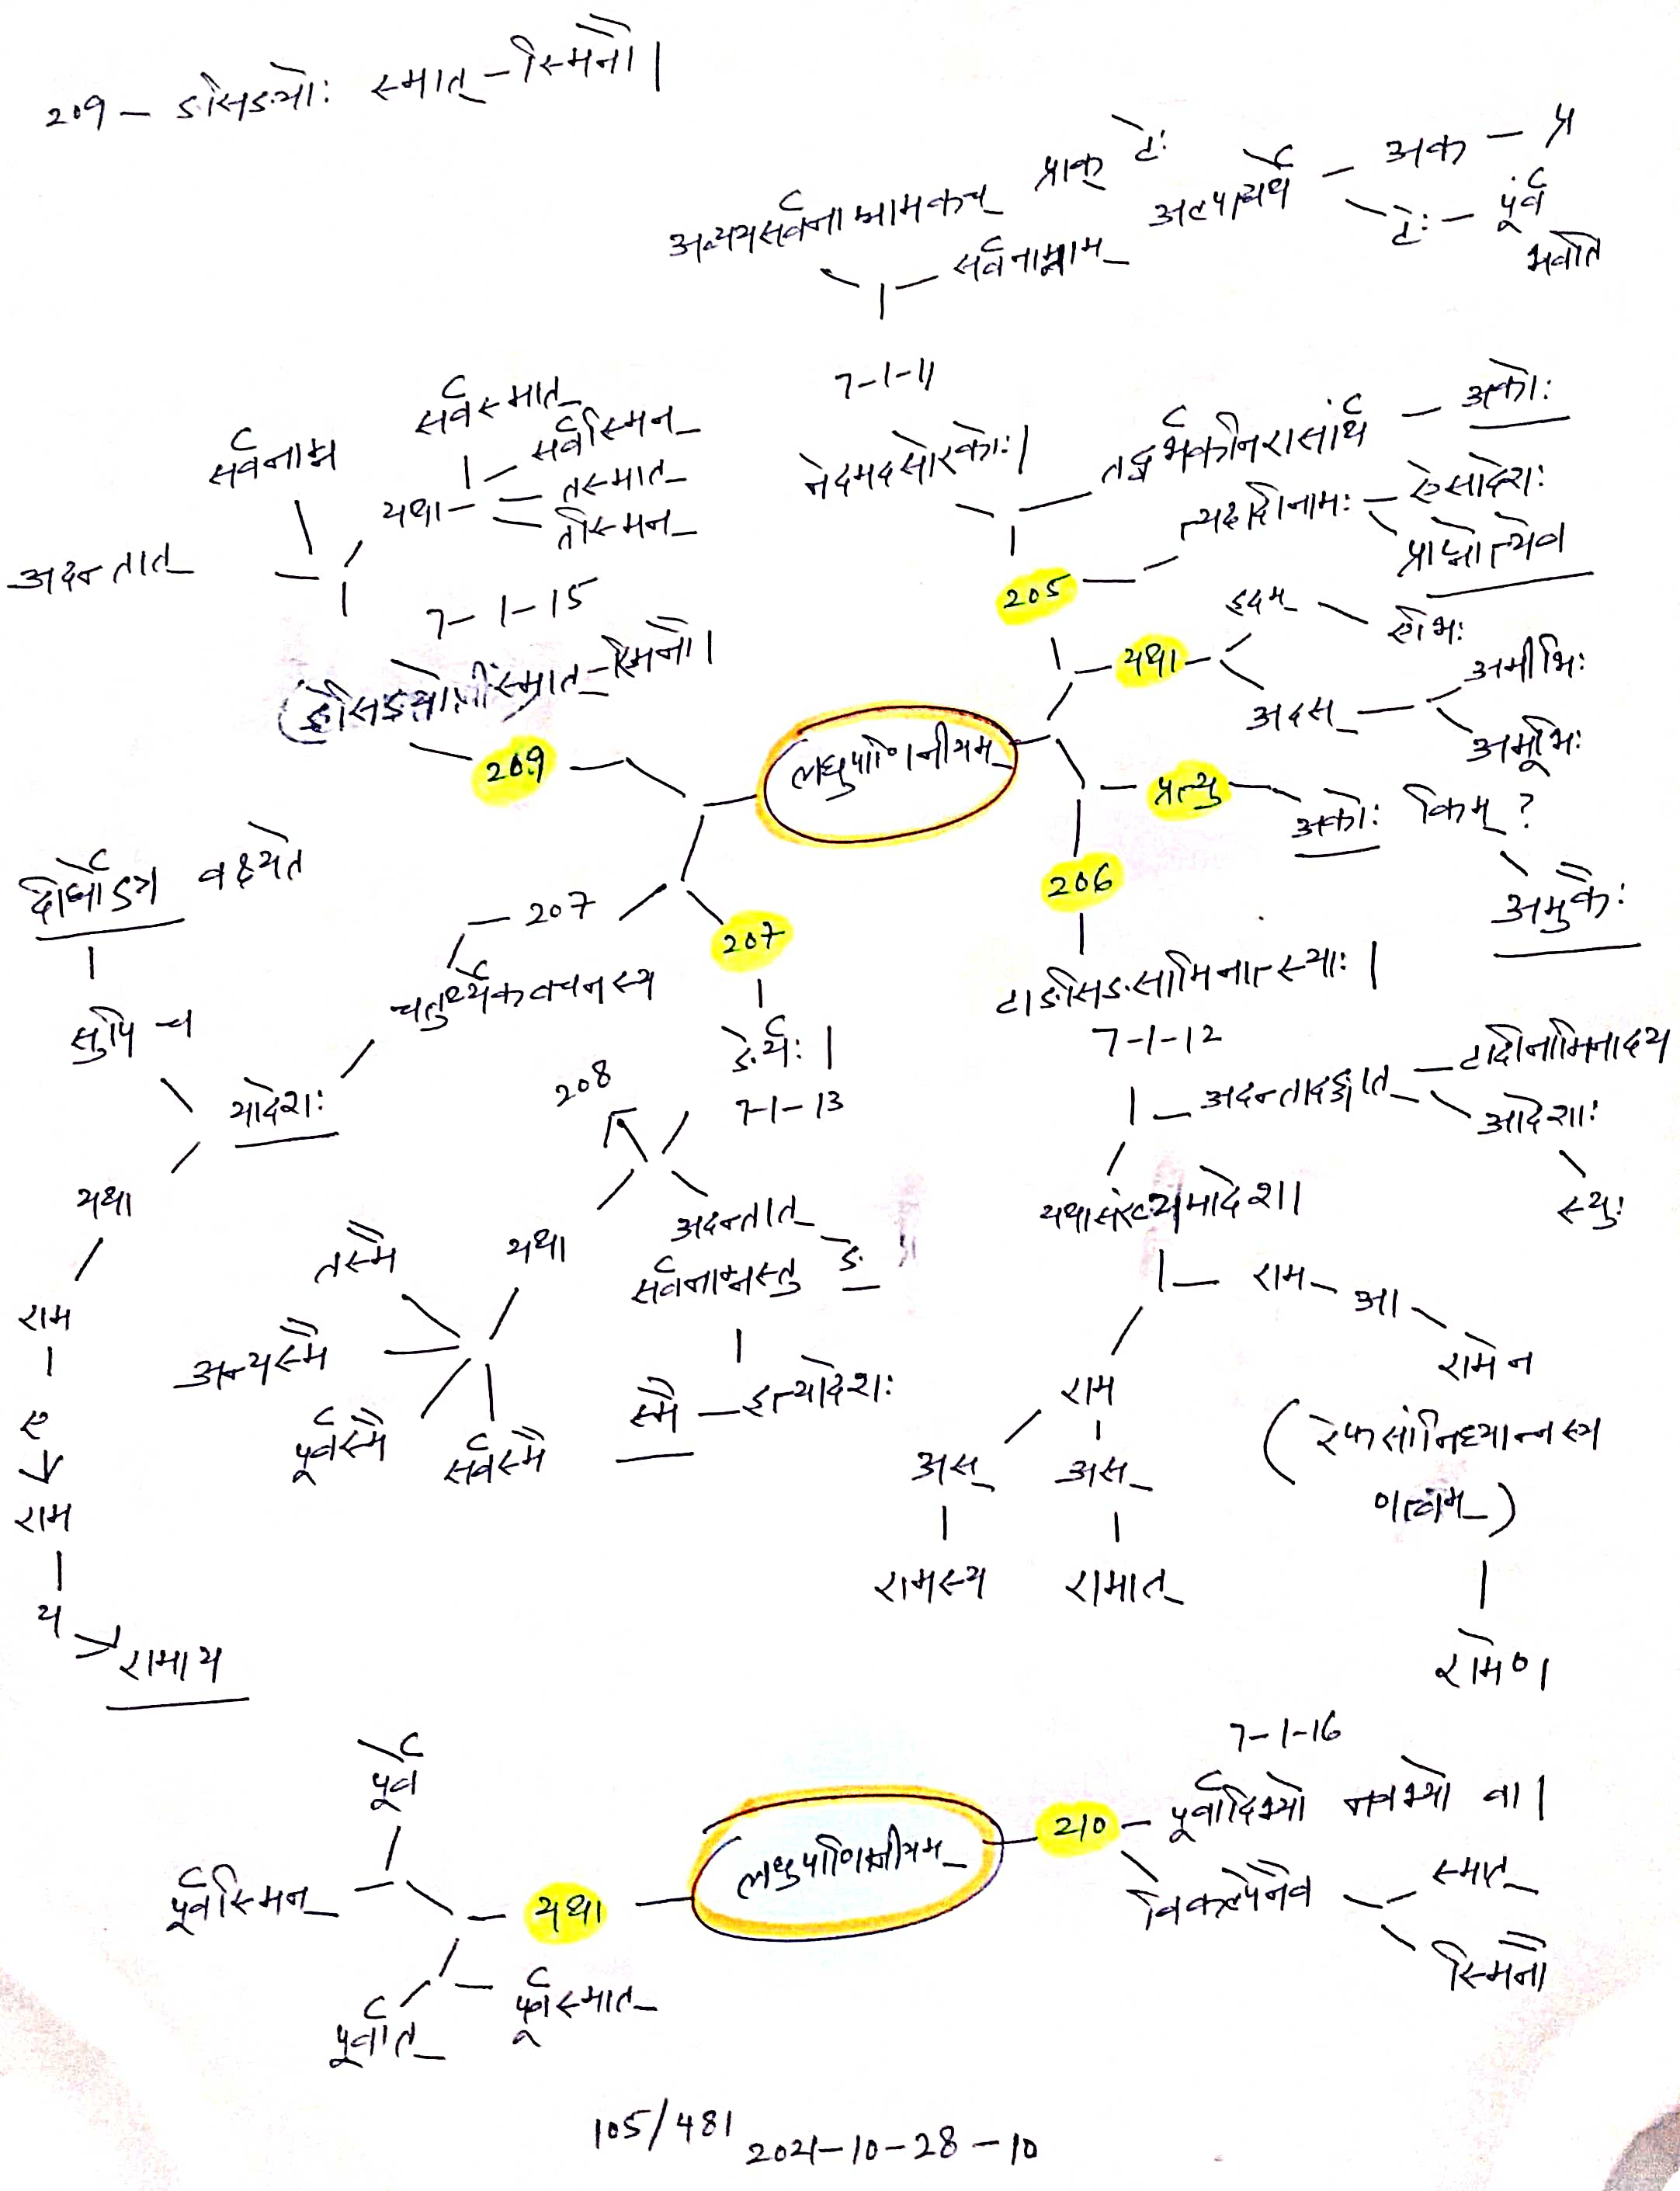 209 – ङसिङ्योः स्मात्-स्मिनौ।
अव्ययसर्वनाम्नामकच् प्राक् टेः
सर्वनाम्नाम्
अल्पाद्यर्थे – अक – प्र
टेः – पूर्वं
भवति
7-1-11
नेदमदसोरकोः।
तद्धर्भकौनरासार्थं – अकोः
त्यदादिनामः – ऐसादेशः
प्राप्नोत्येव
205
यथा
इदम्
एभिः
अदस्
अमीभिः
अमूभिः
सर्वनाम्न
अदन्तात्
यथा
सर्वस्मात्
सर्वस्मिन्
तस्मात्
तस्मिन्
7-1-15
ङसिङ्योः स्मात्-स्मिनौ।
209
लघुपाणिनीयम्
प्रत्यु
अकोः किम्?
अमुकैः
206
टाङसिङसामिनात्स्याः।
7-1-12
अदन्तादङ्गात्
टादीनामिनादय
आदेशाः
स्युः
यथासंख्यमादेशा।
राम
आ
रामेन
(रेफसान्निध्यान्नस्य
णत्वम्)
रामेण
राम
अस्
अस्
रामस्य
रामात्
207
207
ङेर्यः।
7-1-13
208
अदन्तात्
सर्वनाम्नस्तु ङे
स्मै – इत्यादेशः
यथा
तस्मै
अन्यस्मै
पूर्वस्मै
सर्वस्मै
चतुर्थ्येकवचनस्य
यादेशः
सुपि च
दीर्घोऽत्र वक्ष्यते
यथा
राम
ए
राम
य
रामाय
लघुपाणिनीयम्
210
7-1-16
पूर्वादिभ्यो नवभ्यो वा।
विकल्पेनैव
स्मात्
स्मिनौ
यथा
पूर्वे
पूर्वस्मिन्
पूर्वात्
पूर्वस्मात्
105/481
2021-10-28-10